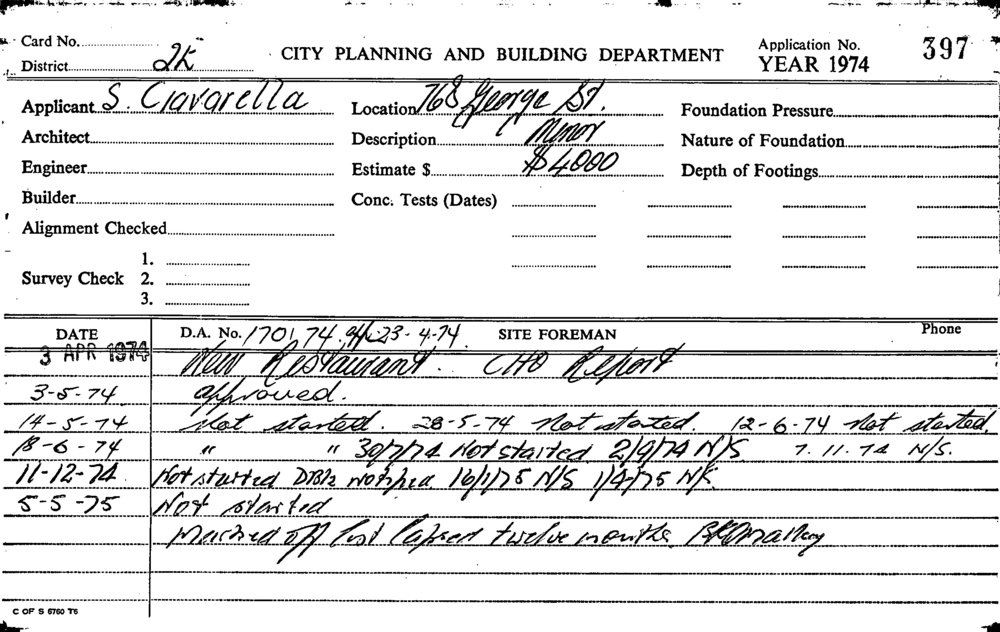 Card No. CITY PLANNING AND BUILDING DEPARTMENT Application No. 397
District 2K YEAR 1974
Applicant S. Ciavarella Location 768 George St. Foundation Pressure
Architect Description Minor Nature of Foundation
Engineer Estimate $ $4000 Depth of Footings
Builder Conc. Tests (Dates)
Alignment Checked
1.
Survey Check 2.
3.
DATE D.A. No. 1701/74 23-4-74 SITE FOREMAN Phone
3 APR 1974 New Restaurant. CHO Report
3-5-74 approved.
14-5-74 Not started. 28-5-74 Not started. 12-6-74 Not started.
18-6-74 " " 30/7/74 Not started 2/9/74 N/S 7.11.74 N/S.
11-12-74 Not started notified 16/1/75 N/S 1/4/75 N/S.
5-5-75 Not started
Marked off list lapsed twelve months.
C OF S 6760 T6